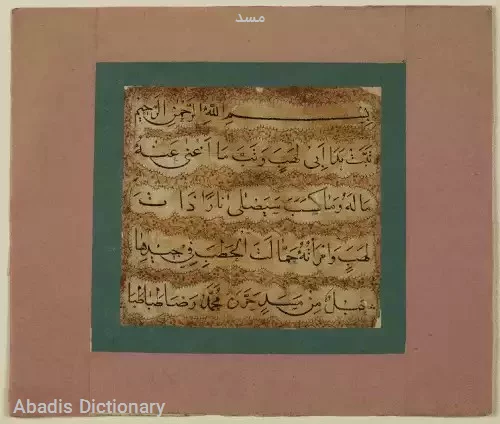 مسد
بِسْمِ اللهِ الرَّحْمٰنِ الرَّحِيمِ
تَبَّتْ يَدَا اَبِى لَهَبٍ وَتَبَّ مَا اَغْنٰى عَنْهُ
مَالُهُ وَمَا كَسَبَ سَيَصْلٰى نَارًا ذَاتَ
لَهَبٍ وَامْرَأَتُهُ حَمَّالَتَ الْحَطَبِ فِى جِيدِهَا
حَبْلٌ مِنْ مَسَدٍ حَرَّرَهُ مُحَمَّد رضا طباطبا
Abadis Dictionary